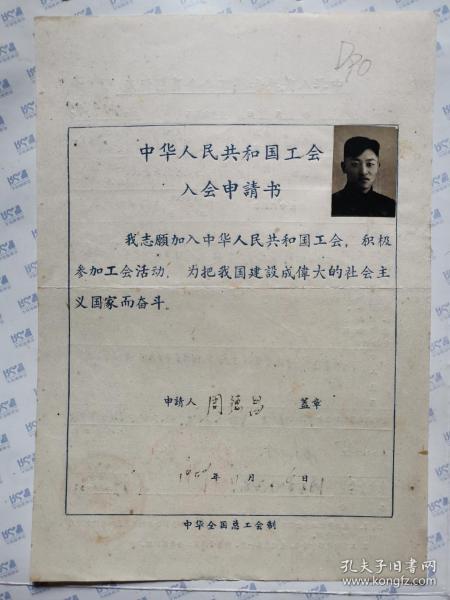 D90
中华人民共和国工会
入会申請书
我志願加入中华人民共和国工会，积极
参加工会活动，为把我国建設成偉大的社会主
义国家而奋斗。
申請人 周德昌 盖章
年 月 日
中华全国总工会制
孔夫子旧书网
www.kongfz.com